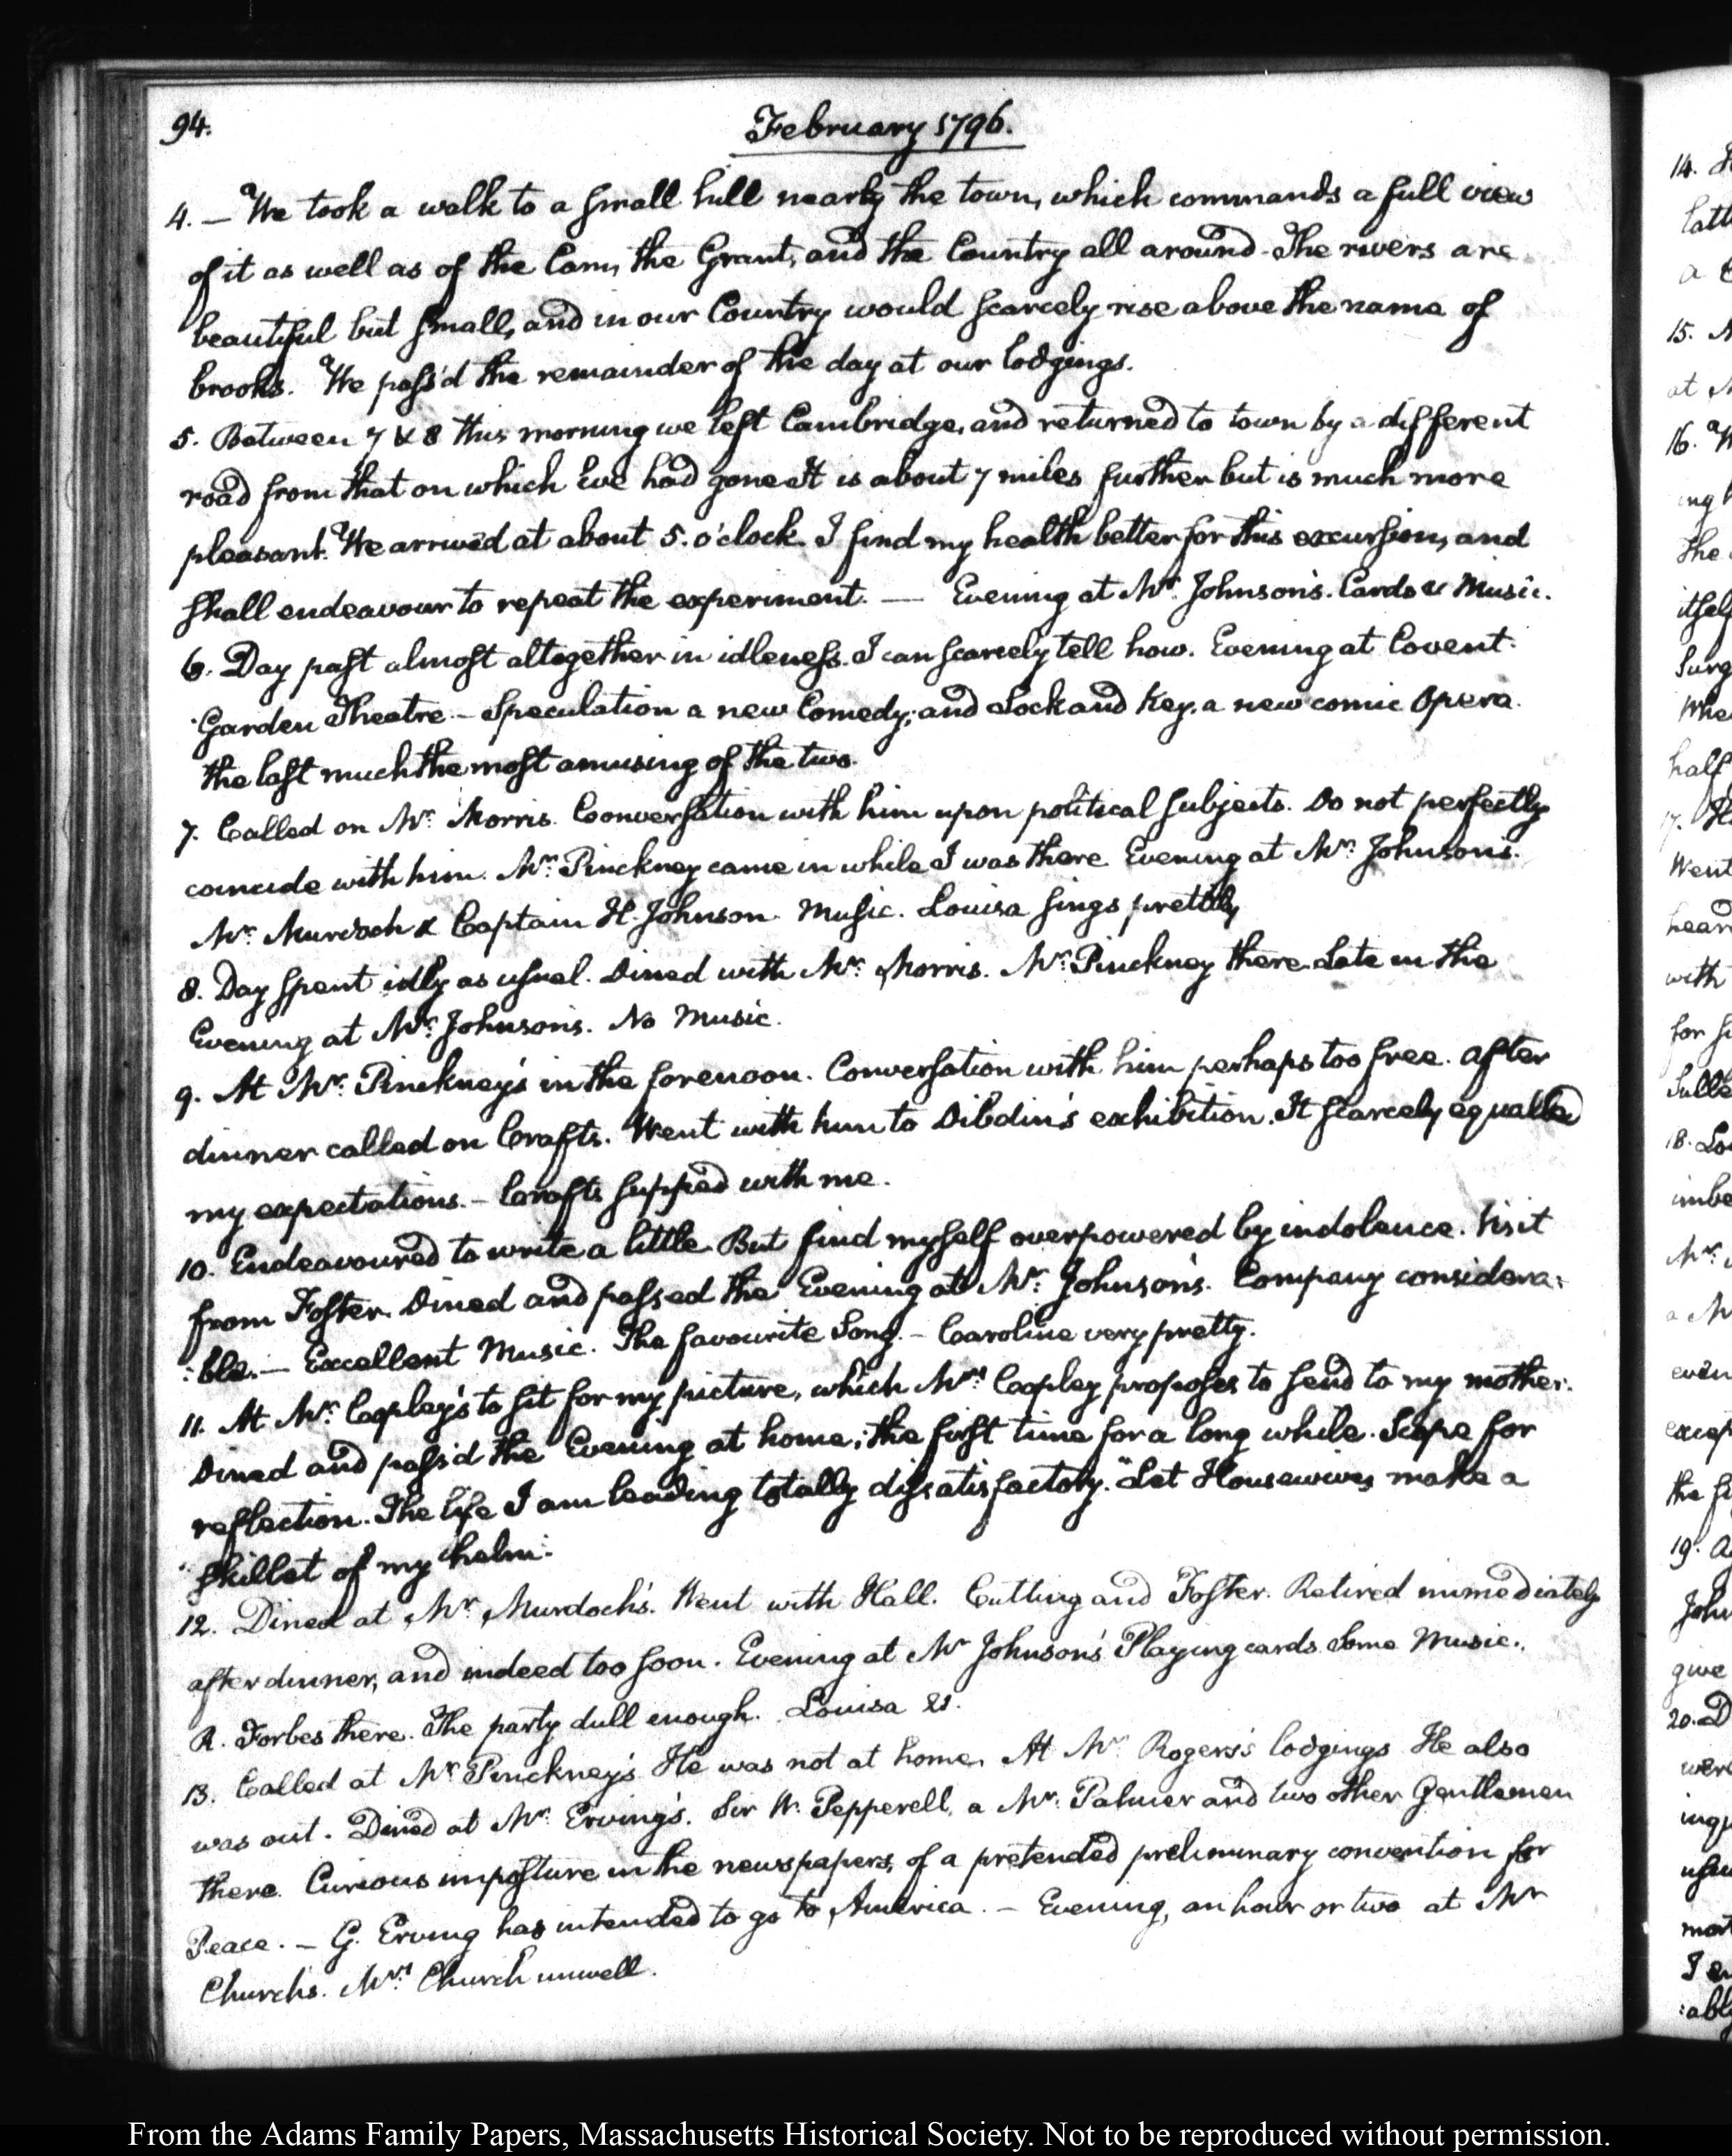 94.
February 1796.
4. — We took a walk to a small hill nearby the town, which commands a full view
of it as well as of the Cam, the Grant, and the Country all around. The rivers are
beautiful but small, and in our Country would scarcely rise above the name of
brooks. We pass'd the remainder of the day at our lodgings.
5. Between 7 & 8 this morning we left Cambridge, and returned to town by a different
road from that on which we had gone. It is about 7 miles further but is much more
pleasant. We arrived at about 5. o'clock. I find my health better for this excursion, and
shall endeavour to repeat the experiment. — Evening at Mr. Johnson's. Cards & Music.
6. Day past almost altogether in idleness. I can scarcely tell how. Evening at Covent-
Garden Theatre — Speculation a new Comedy, and Lock and Key, a new comic Opera.
the last much the most amusing of the two.
7. Called on Mr. Morris. Conversation with him upon political subjects. Do not perfectly
coincide with him. Mr. Pinckney came in while I was there. Evening at Mr. Johnson's.
Mr. Murdoch & Captain H. Johnson. Music. Louisa sings prettily
8. Day spent idly as usual. Dined with Mr. Morris. Mr. Pinckney there. Late in the
Evening at Mr. Johnson's. No Music.
9. At Mr. Pinckney's in the forenoon. Conversation with him perhaps too free. After
dinner called on Crafts. Went with him to Dibdin's exhibition. It scarcely equalled
my expectations. — Crafts supped with me.
10. Endeavoured to write a little. But find myself overpowered by indolence. Visit
from Foster. Dined and passed the Evening at Mr. Johnson's. Company considera:
:ble. — Excellent Music. The favourite Song. — Caroline very pretty.
11. At Mr. Copley's to sit for my picture, which Mrs. Copley proposes to send to my mother.
Dined and pass'd the Evening at home; the first time for a long while. Scope for
reflection. The life I am leading totally dissatisfactory. "Let Housewives make a
skillet of my helm."
12. Dined at Mr. Murdoch's. Went with Hall. Cutting and Foster. Retired immediately
after dinner, and indeed too soon. Evening at Mr. Johnson's Playing cards. Some Music.
R. Forbes there. The party dull enough. Louisa 21.
13. Called at Mr. Pinckney's. He was not at home. At Mr. Rogers's lodgings. He also
was out. Dined at Mr. Erving's. Sir W. Pepperell, a Mr. Palmer and two other Gentlemen
there. Curious imposture in the newspapers, of a pretended preliminary convention for
Peace. — G. Erving has intended to go to America. — Evening, an hour or two at Mr
Church's. Mrs. Church unwell.
From the Adams Family Papers, Massachusetts Historical Society. Not to be reproduced without permission.